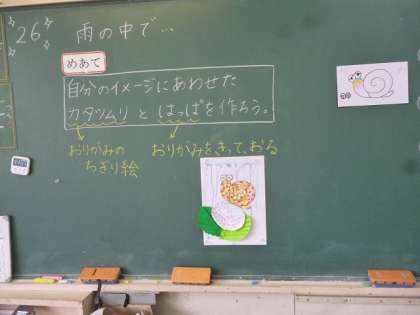 26 雨の中で…
めあて
自分のイメージにあわせた
カタツムリとはっぱを作ろう。
おりがみの
ちぎり絵
おりがみをきって、おる